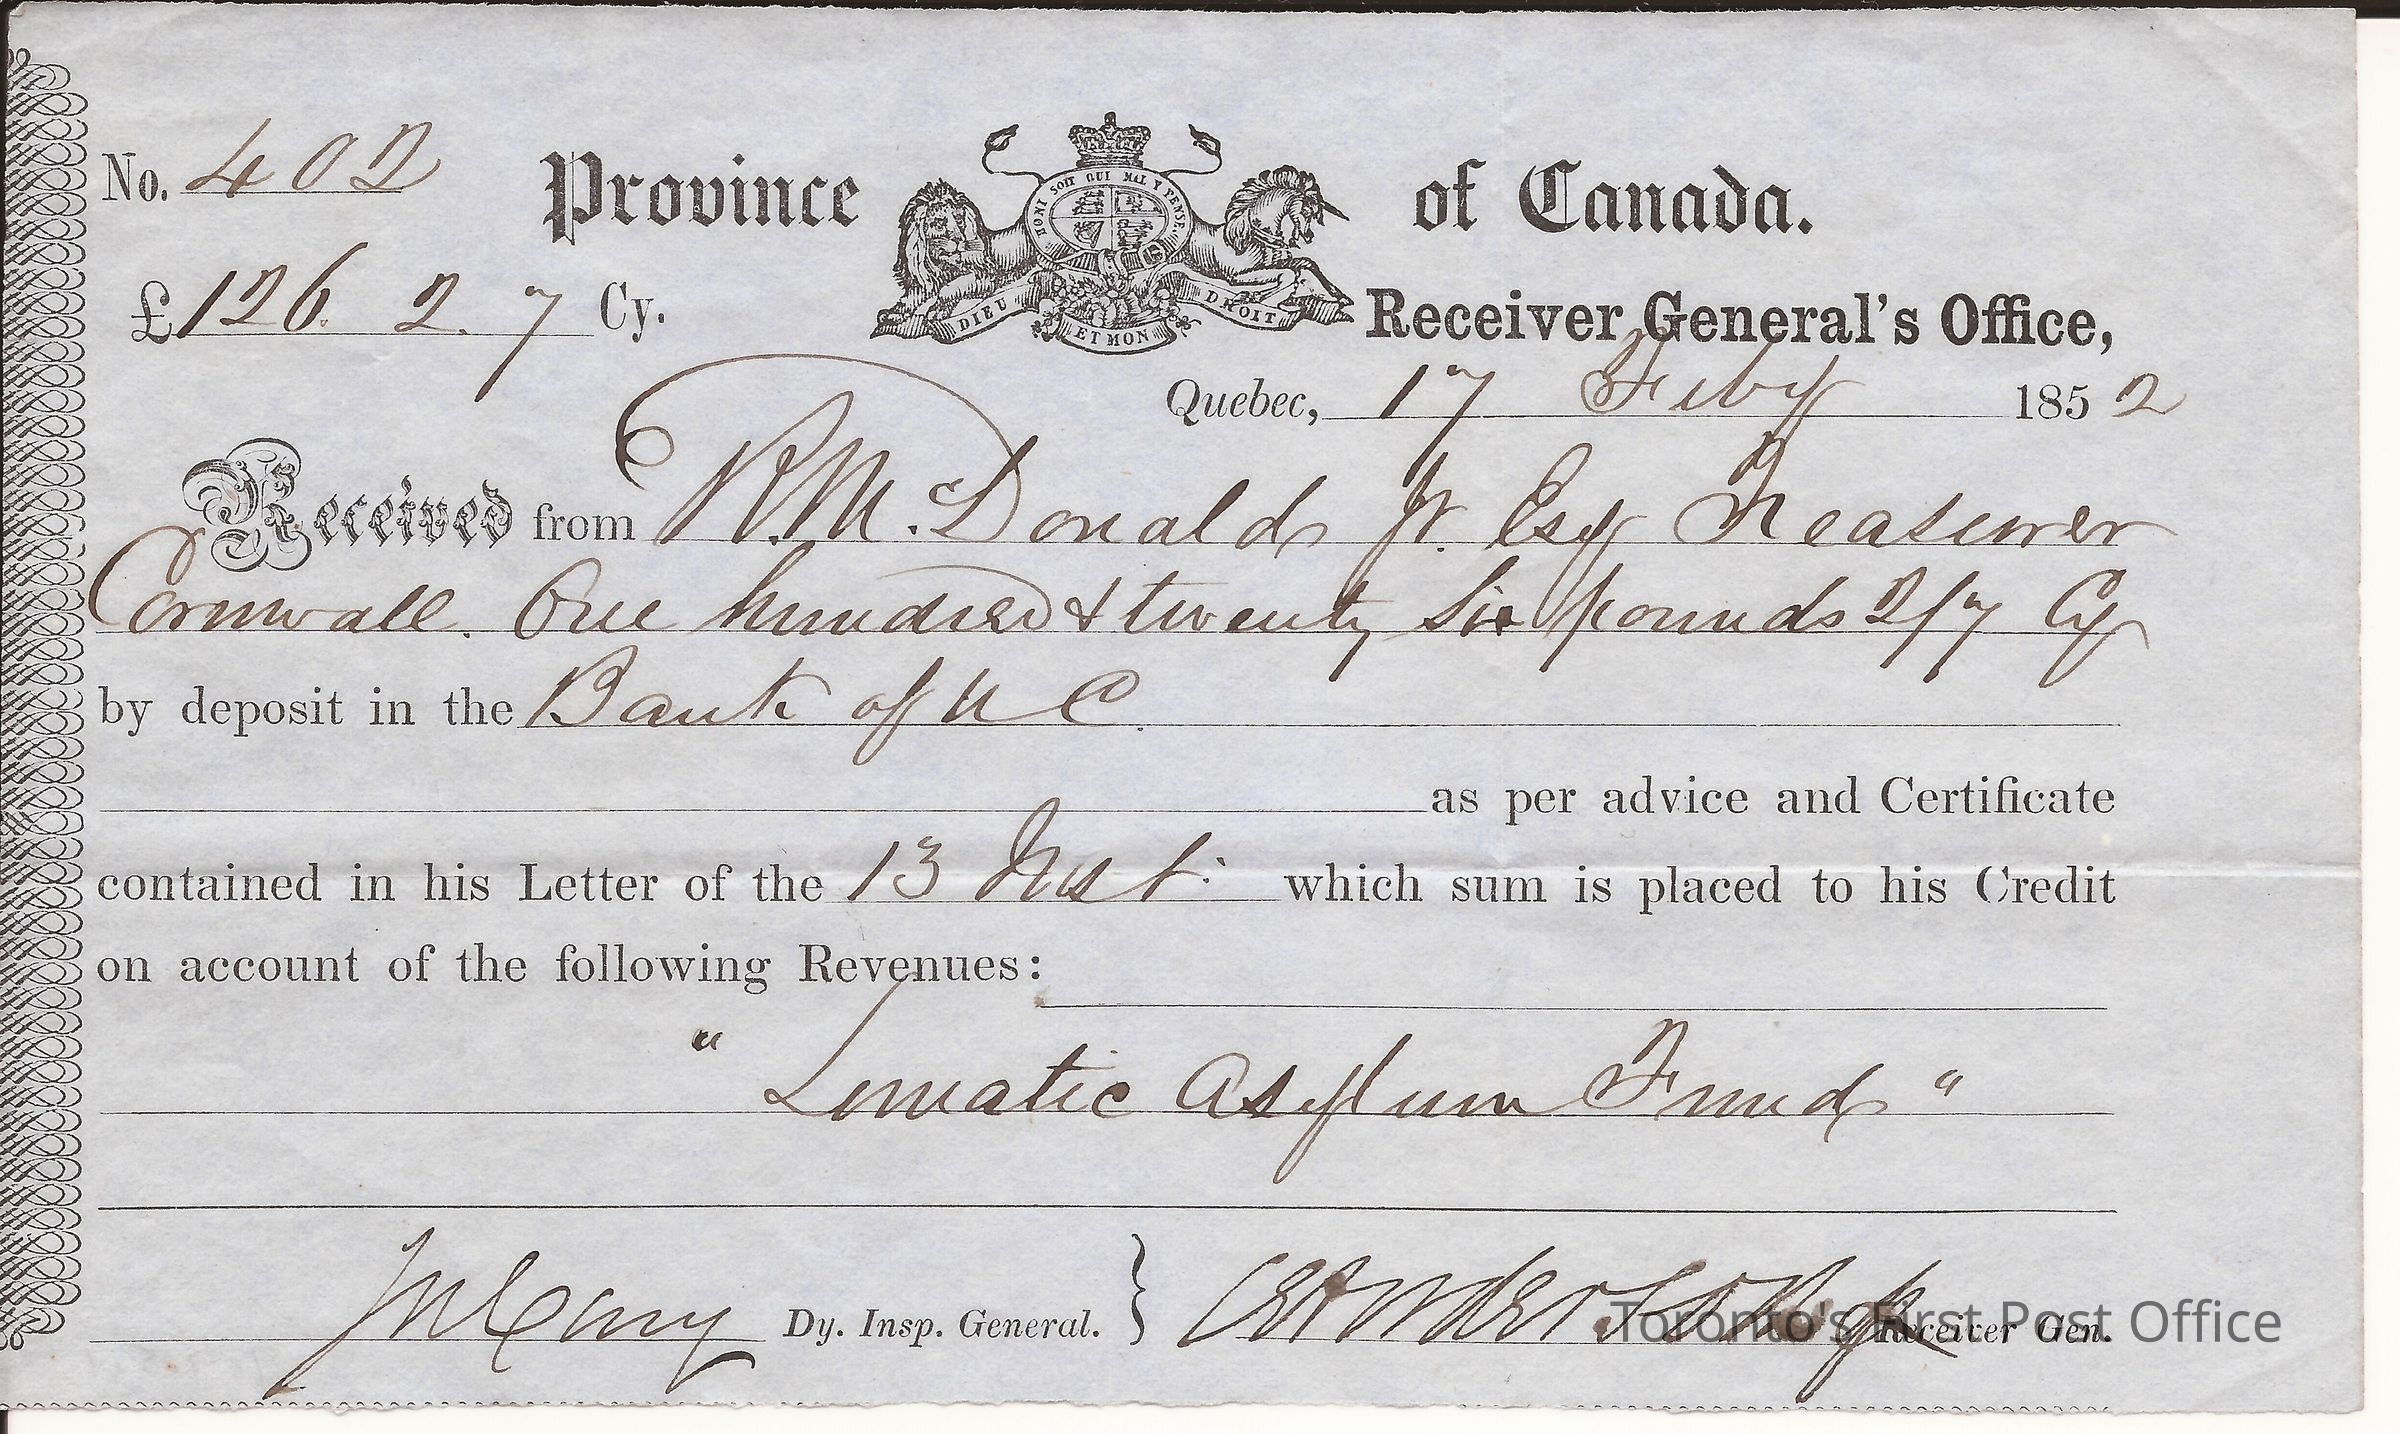 No. 402 Province of Canada.
HONI SOIT QUI MAL Y PENSE
DIEU ET MON DROIT
£126. 2. 7 Cy.
Receiver General's Office,
Quebec, 17 Feby 1852
Received from R. McDonald Jr. Esq Treasurer
Cornwall. One hundred & twenty Six pounds 2/7 Cy
by deposit in the Bank of U C.
as per advice and Certificate
contained in his Letter of the 13 Inst. which sum is placed to his Credit
on account of the following Revenues:
" Lunatic Asylum Fund "
Dy. Insp. General. } Receiver Gen.
Toronto's First Post Office